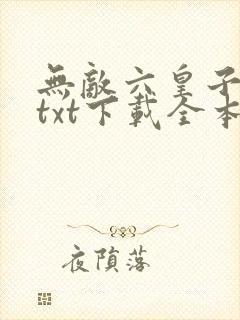 無敵六皇子
txt下載全本
夜隕落